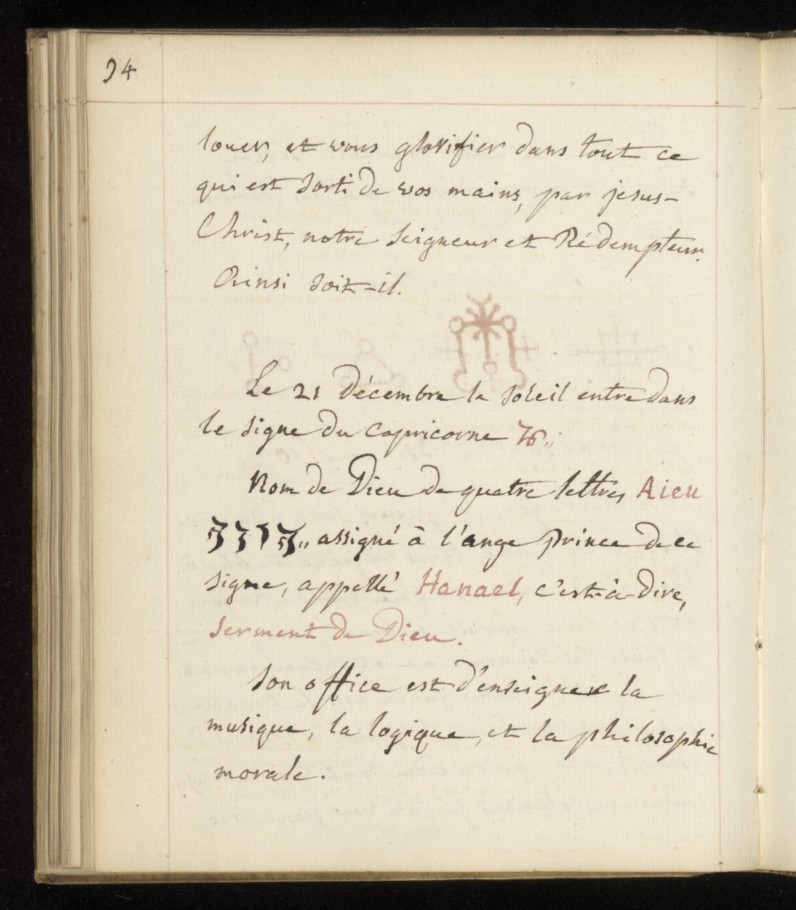 94
louer, et vous glorifier dans tout ce
qui est sorti de vos mains, par jesus-
Christ, notre Seigneur et Rédempteur.
Ainsi soit-il.
Le 21 décembre le soleil entre dans
le signe du Capricorne ♑,,
Nom de Dieu de quatre lettres Aieu
,, assigné à l'ange prince de ce
signe, appellé Hanael, c'est-à-dire,
serment de Dieu.
Son office est d'enseigner la
musique, la logique, et la philosophie
morale.